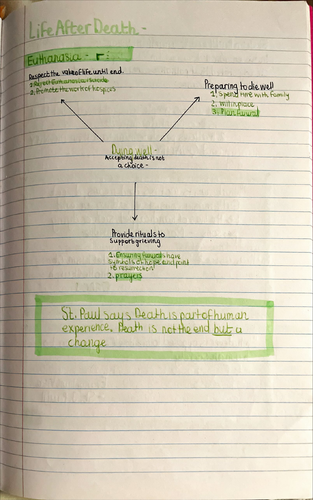 Life After Death -
Euthanasia - r:
Respect the value of life until end.
1. Reject Euthanasia/suicide
2. Promote the work of hospices
Preparing to die well
1. Spend time with family
2. Will in place
3. Plan funeral
Dying well -
Accepting death is not
a choice -
Provide rituals to
support grieving
1. Ensuring funerals have
symbols of hope and point
to resurrection
2. prayers
St. Paul says Death is part of human
experience. Death is not the end but a
change